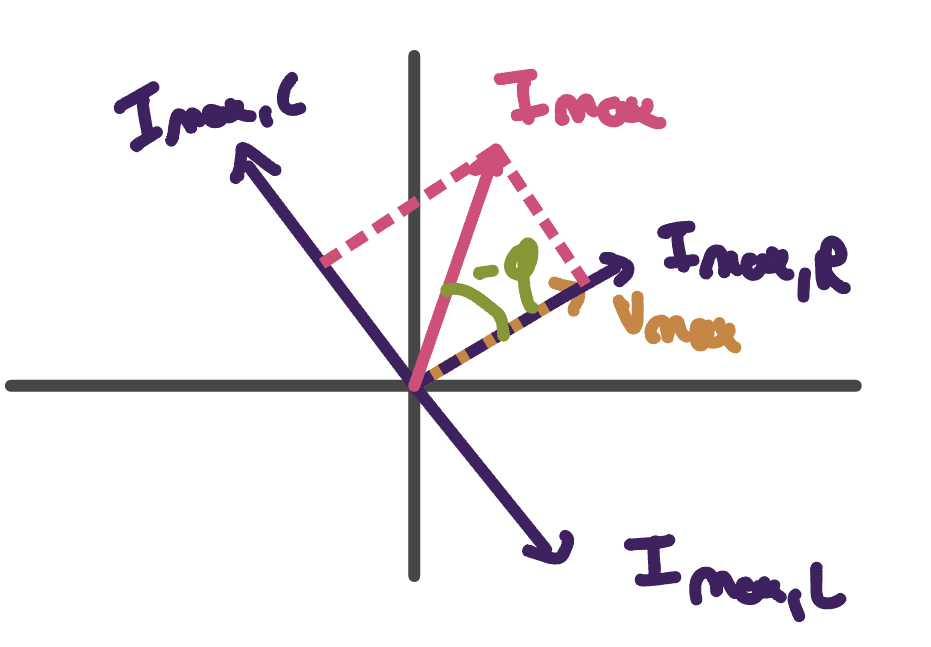 I max, C
I max
-φ
I max, R
V max
I max, L